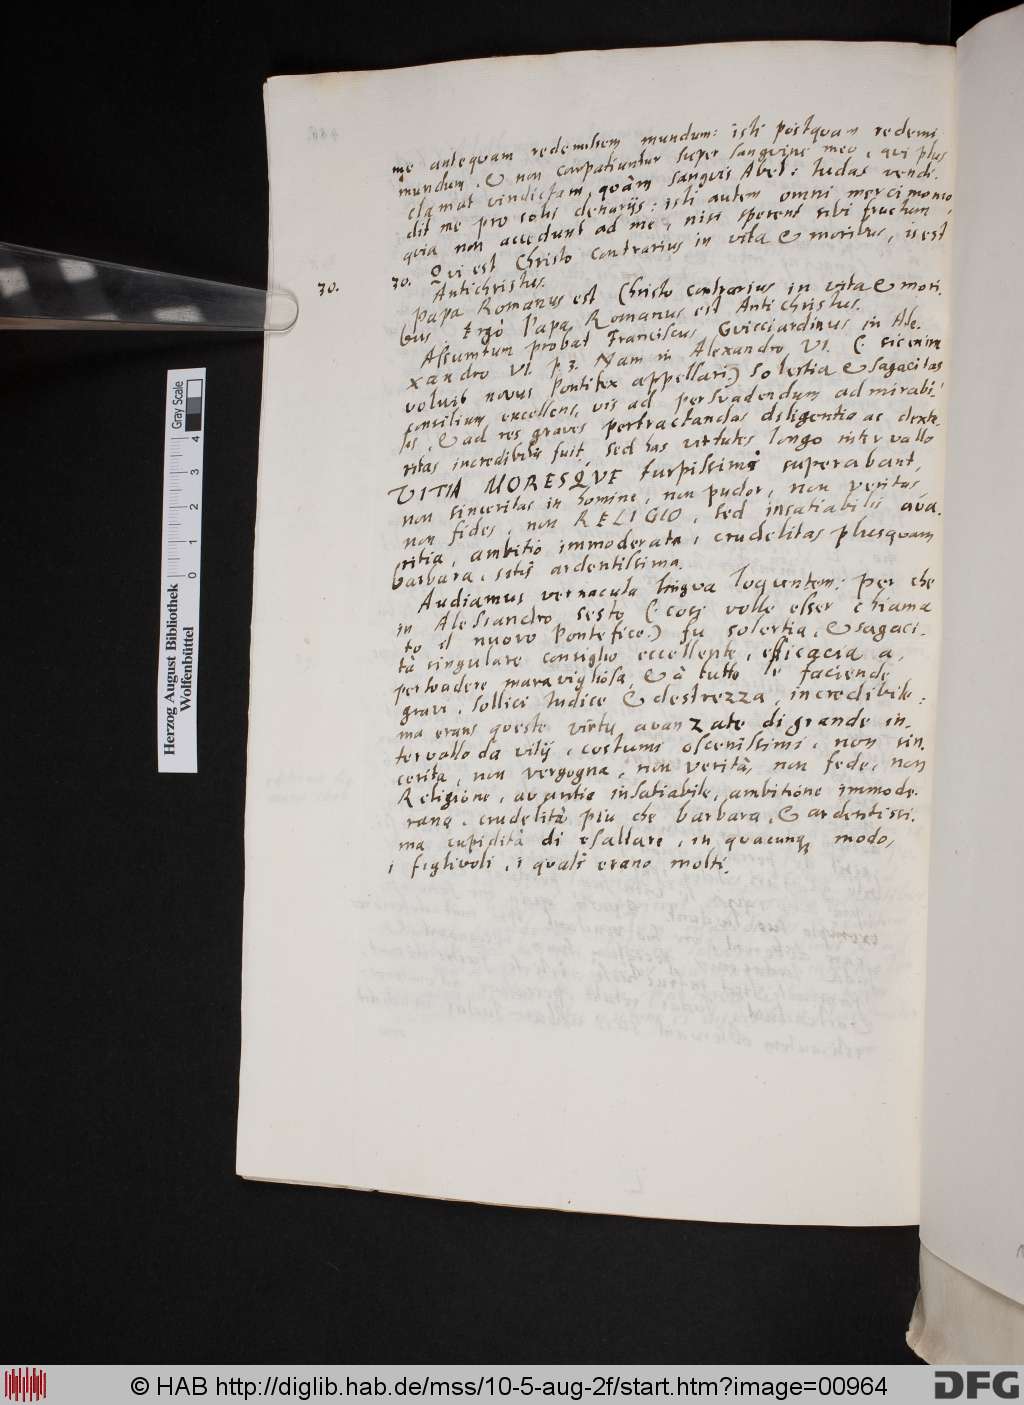 me antequam redemissem mundum: isti postquam redemi
mundum. & non compatiuntur super sanguine meo, qui plus
clamat vindictam, quàm sanguis Abel: Iudas vendi-
dit me pro solis denarijs: isti autem omni mercimonio,
quia non accedunt ad me, nisi sperent sibi fructum.
30. 30. Qui est Christo contrarius in vita & moribus, is est
Antichristus.
Papa Romanus est Christo contrarius in vita & mori-
bus. Ergò Papa Romanus est Antichristus.
Assumtum probat Franciscus Guicciardinus in Ale-
xandro VI. p 3. Nam in Alexandro VI. (: sic enim
voluit novus Pontifex appellari) solertia & sagacitas
consilium excellens, vis ad persuadendum admirabi-
lis, & ad res graves pertractandas diligentia ac dexte-
ritas incredibilis fuit. Sed has virtutes longo intervallo
VITIA MORESQVE turpissimi superabant,
non sinceritas in homine, non pudor, non veritas
non fides, non RELIGIO, sed insatiabilis ava-
ritia, ambitio immoderata, crudelitas plusquam
barbara, sitis ardentissima.
Audiamus vernacula lingua loquentem: Per che
in Alessandro sesto (: cosi volle esser chiama
to il nuovo Pontefice:) fu solertia, & sagaci-
tà singulare consiglio eccellente, efficacia a,
persuadere maravigliosa, & à tutto le faciende
gravi, sollici tudice & destrezza, incredibile:
ma erans queste virtu avanzate di grande in-
tervallo da vitij, costumi oscenissimi, non sin-
cerita, non vergogna, non verità, non fede, non
Religione, avaritia insatiabile, ambitione immode-
rana, crudelità piu che barbara, & ardentissi-
ma cupidità di esaltare, in quacunq modo,
i figlivoli, i quali erano molti.
Herzog August Bibliothek
Wolfenbüttel
0 1 2 3 4
Gray Scale
© HAB http://diglib.hab.de/mss/10-5-aug-2f/start.htm?image=00964
DFG